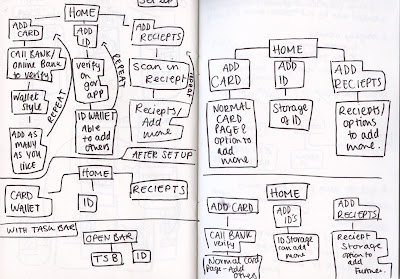 Set up
HOME
ADD
CARD
ADD
ID
ADD
RECIEPTS
CAll BANK/
online Bank
to verify
verify
on gov
app
Scan in
Reciept
REPEAT
REPEAT
REPEAT
Wallet
style
ADD AS
MANY
AS YOU
LIKE
ID WALLET
Able to add
others
Reciepts/
Add
more
AFTER SETUP
HOME
CARD
WALLET
ID
RECIEPTS
WITH TASK BAR
OPEN BAR
TSB
ID
HOME
ADD
CARD
ADD
ID
ADD
RECIEPTS
NORMAL
CARD
PAGE &
option to
add
more
Storage
of ID
Reciepts/
options
to add
more.
HOME
ADD CARD
ADD
ID'S
ADD
RECIEPTS
Call BANK
verify
ID Storage
can add
more
Reciept
Storage
option to
add
Further.
Normal card
Page - Add
others